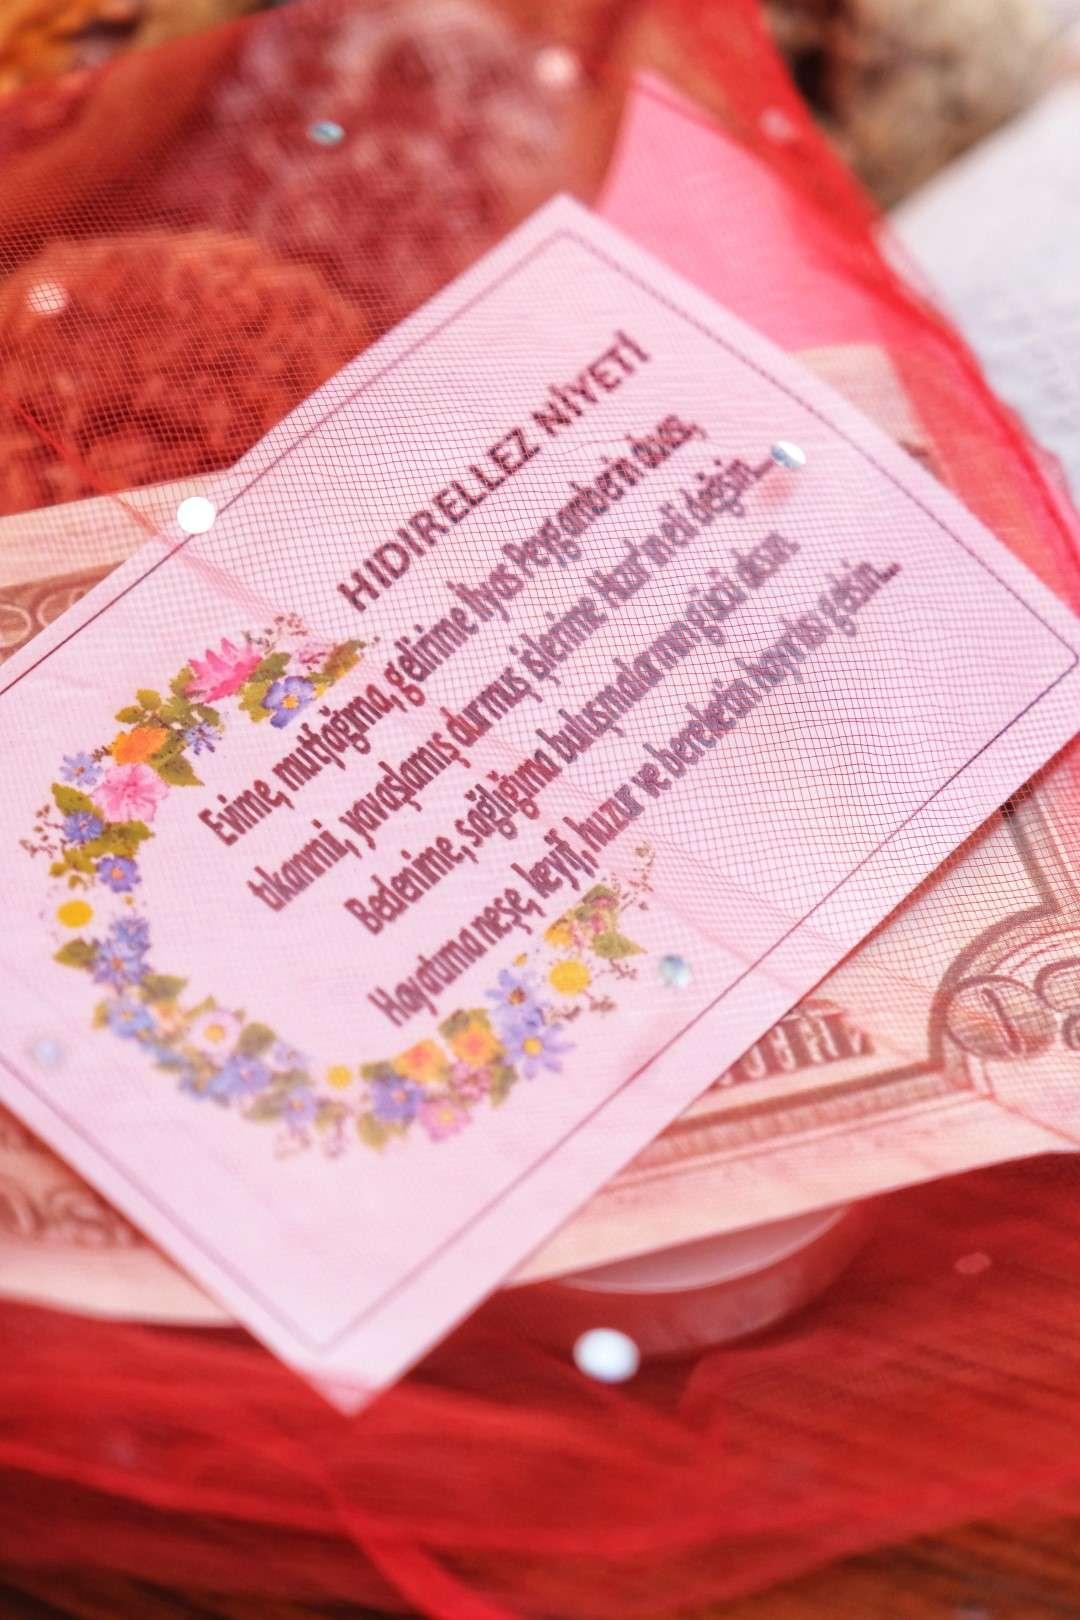 HIDIRELLEZ NİYETİ
Evime, mutfağıma, gelirime İlyas Peygamber'in duası,
tıkanmış, yavaşlamış durmuş işlerime Hızır'ın eli değsin...
Bedenime, sağlığıma buluşmalarının gücü olsun
Hayatıma neşe, keyif, huzur ve bereketin hayırlısı gelsin...